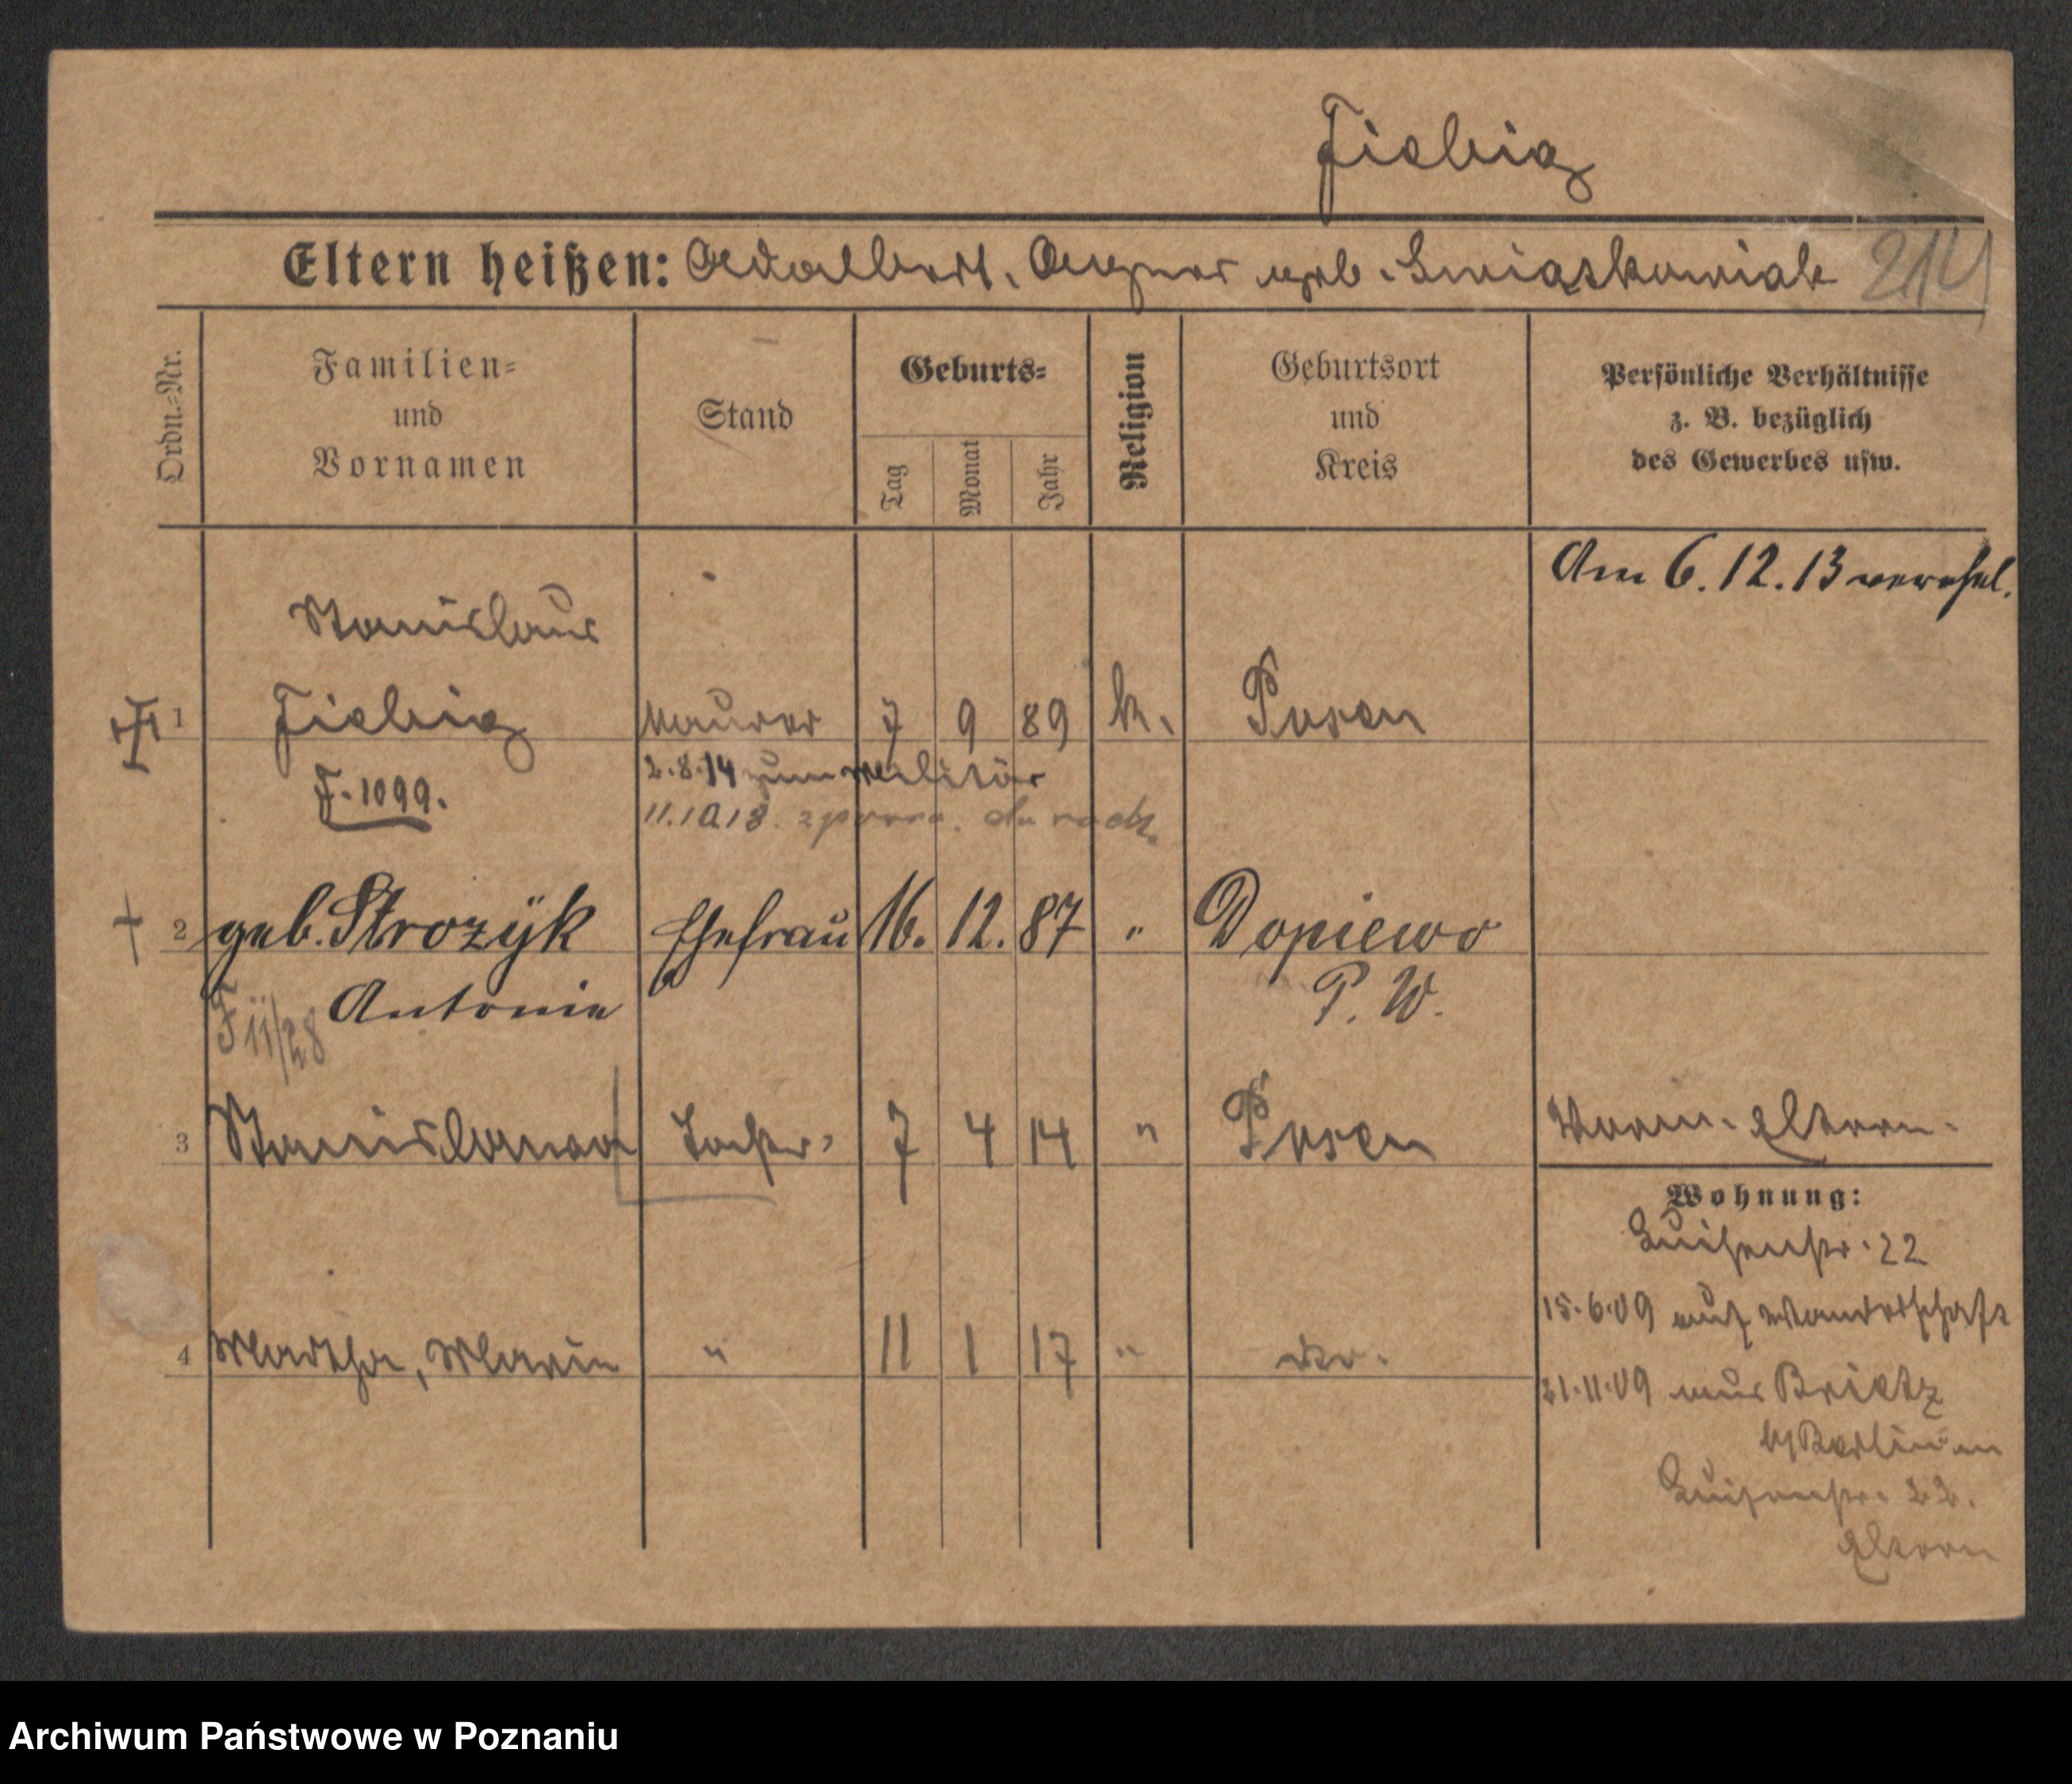 Fiebig
Eltern heißen: Adalbert, Agnes geb. Smigaskowiak 214
Ordn.-Nr. Familien- und Vornamen Stand Geburts- Tag Monat Jahr Religion Geburtsort und Kreis Persönliche Verhältnisse z. B. bezüglich des Gewerbes usw.
Am 6.12.13 verehel.
Stanislaus
1 Fiebig Maurer 7 9 89 k. Posen
2.8.14 zum Militär
F. 1099.
11.10.18. zurück
2 geb. Strozÿk Ehefrau 16. 12. 87 " Dopiewo
Antonie P. W.
F 11/28
3 Stanislawa Tochter 7 4 14 " Posen Eltern.
Wohnung:
Luisenstr. 22
15.6.09 auf Wanderschaft
4 Martha, Marie " 11 1 17 " do.
21.11.09 aus Brietz
b/Berlin
Luisenstr. 22.
Eltern
Archiwum Państwowe w Poznaniu